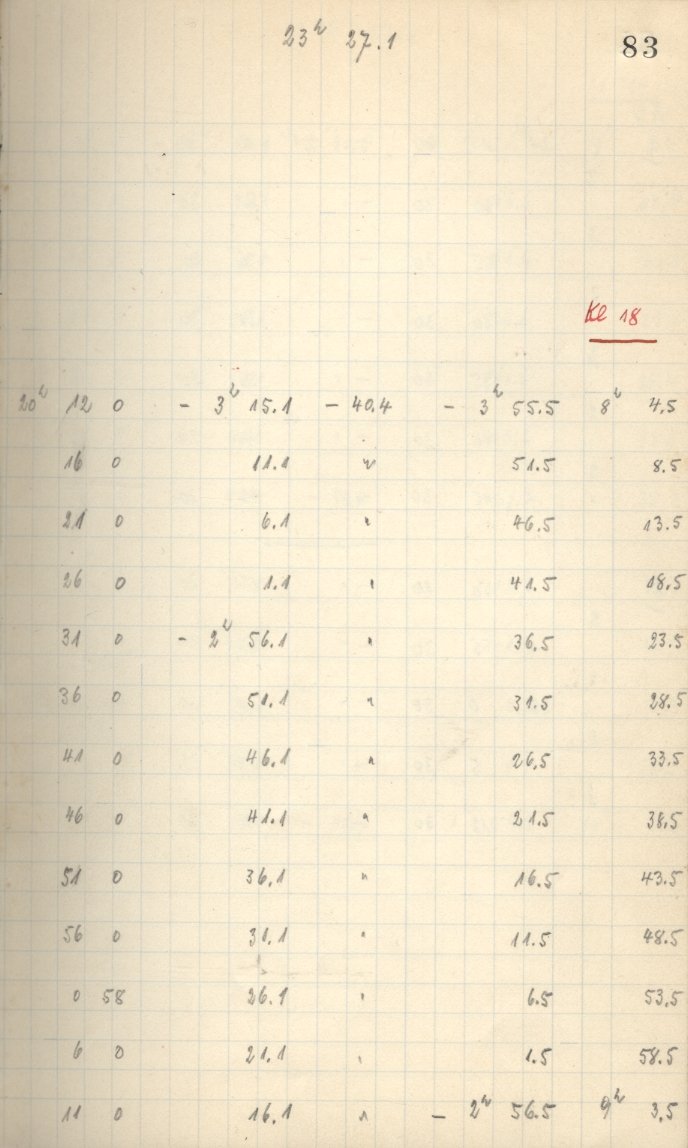 23ʰ 27.1 83
Kl 18
20ʰ 12 0 - 3ʰ 15.1 - 40.4 - 3ʰ 55.5 8ʰ 4,5
16 0 11.1 " 51.5 8.5
21 0 6.1 " 46.5 13.5
26 0 1.1 " 41.5 18,5
31 0 - 2ʰ 56.1 " 36,5 23.5
36 0 51.1 " 31.5 28.5
41 0 46.1 " 26,5 33,5
46 0 41.1 " 21.5 38,5
51 0 36,1 " 16.5 43.5
56 0 31.1 " 11.5 48.5
0 58 26.1 " 6.5 53,5
6 0 21.1 " 1.5 58.5
11 0 16.1 " - 2ʰ 56.5 9ʰ 3,5